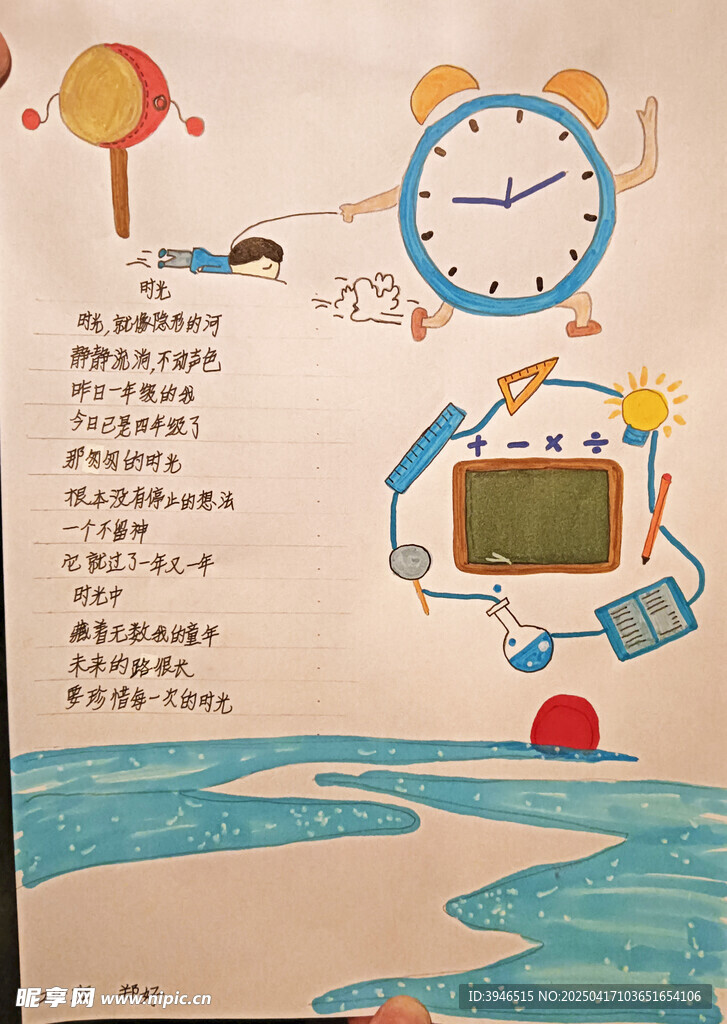 时光
时光,就像隐形的河
静静流淌,不动声色
昨日一年级的我
今日已是四年级了
那匆匆的时光
根本没有停止的想法
一个不留神
它就过了一年又一年
时光中
藏着无数我的童年
未来的路很长
要珍惜每一次的时光
+ − × ÷
郑好
昵享网 www.nipic.cn
ID:3946515 NO:20250417103651654106